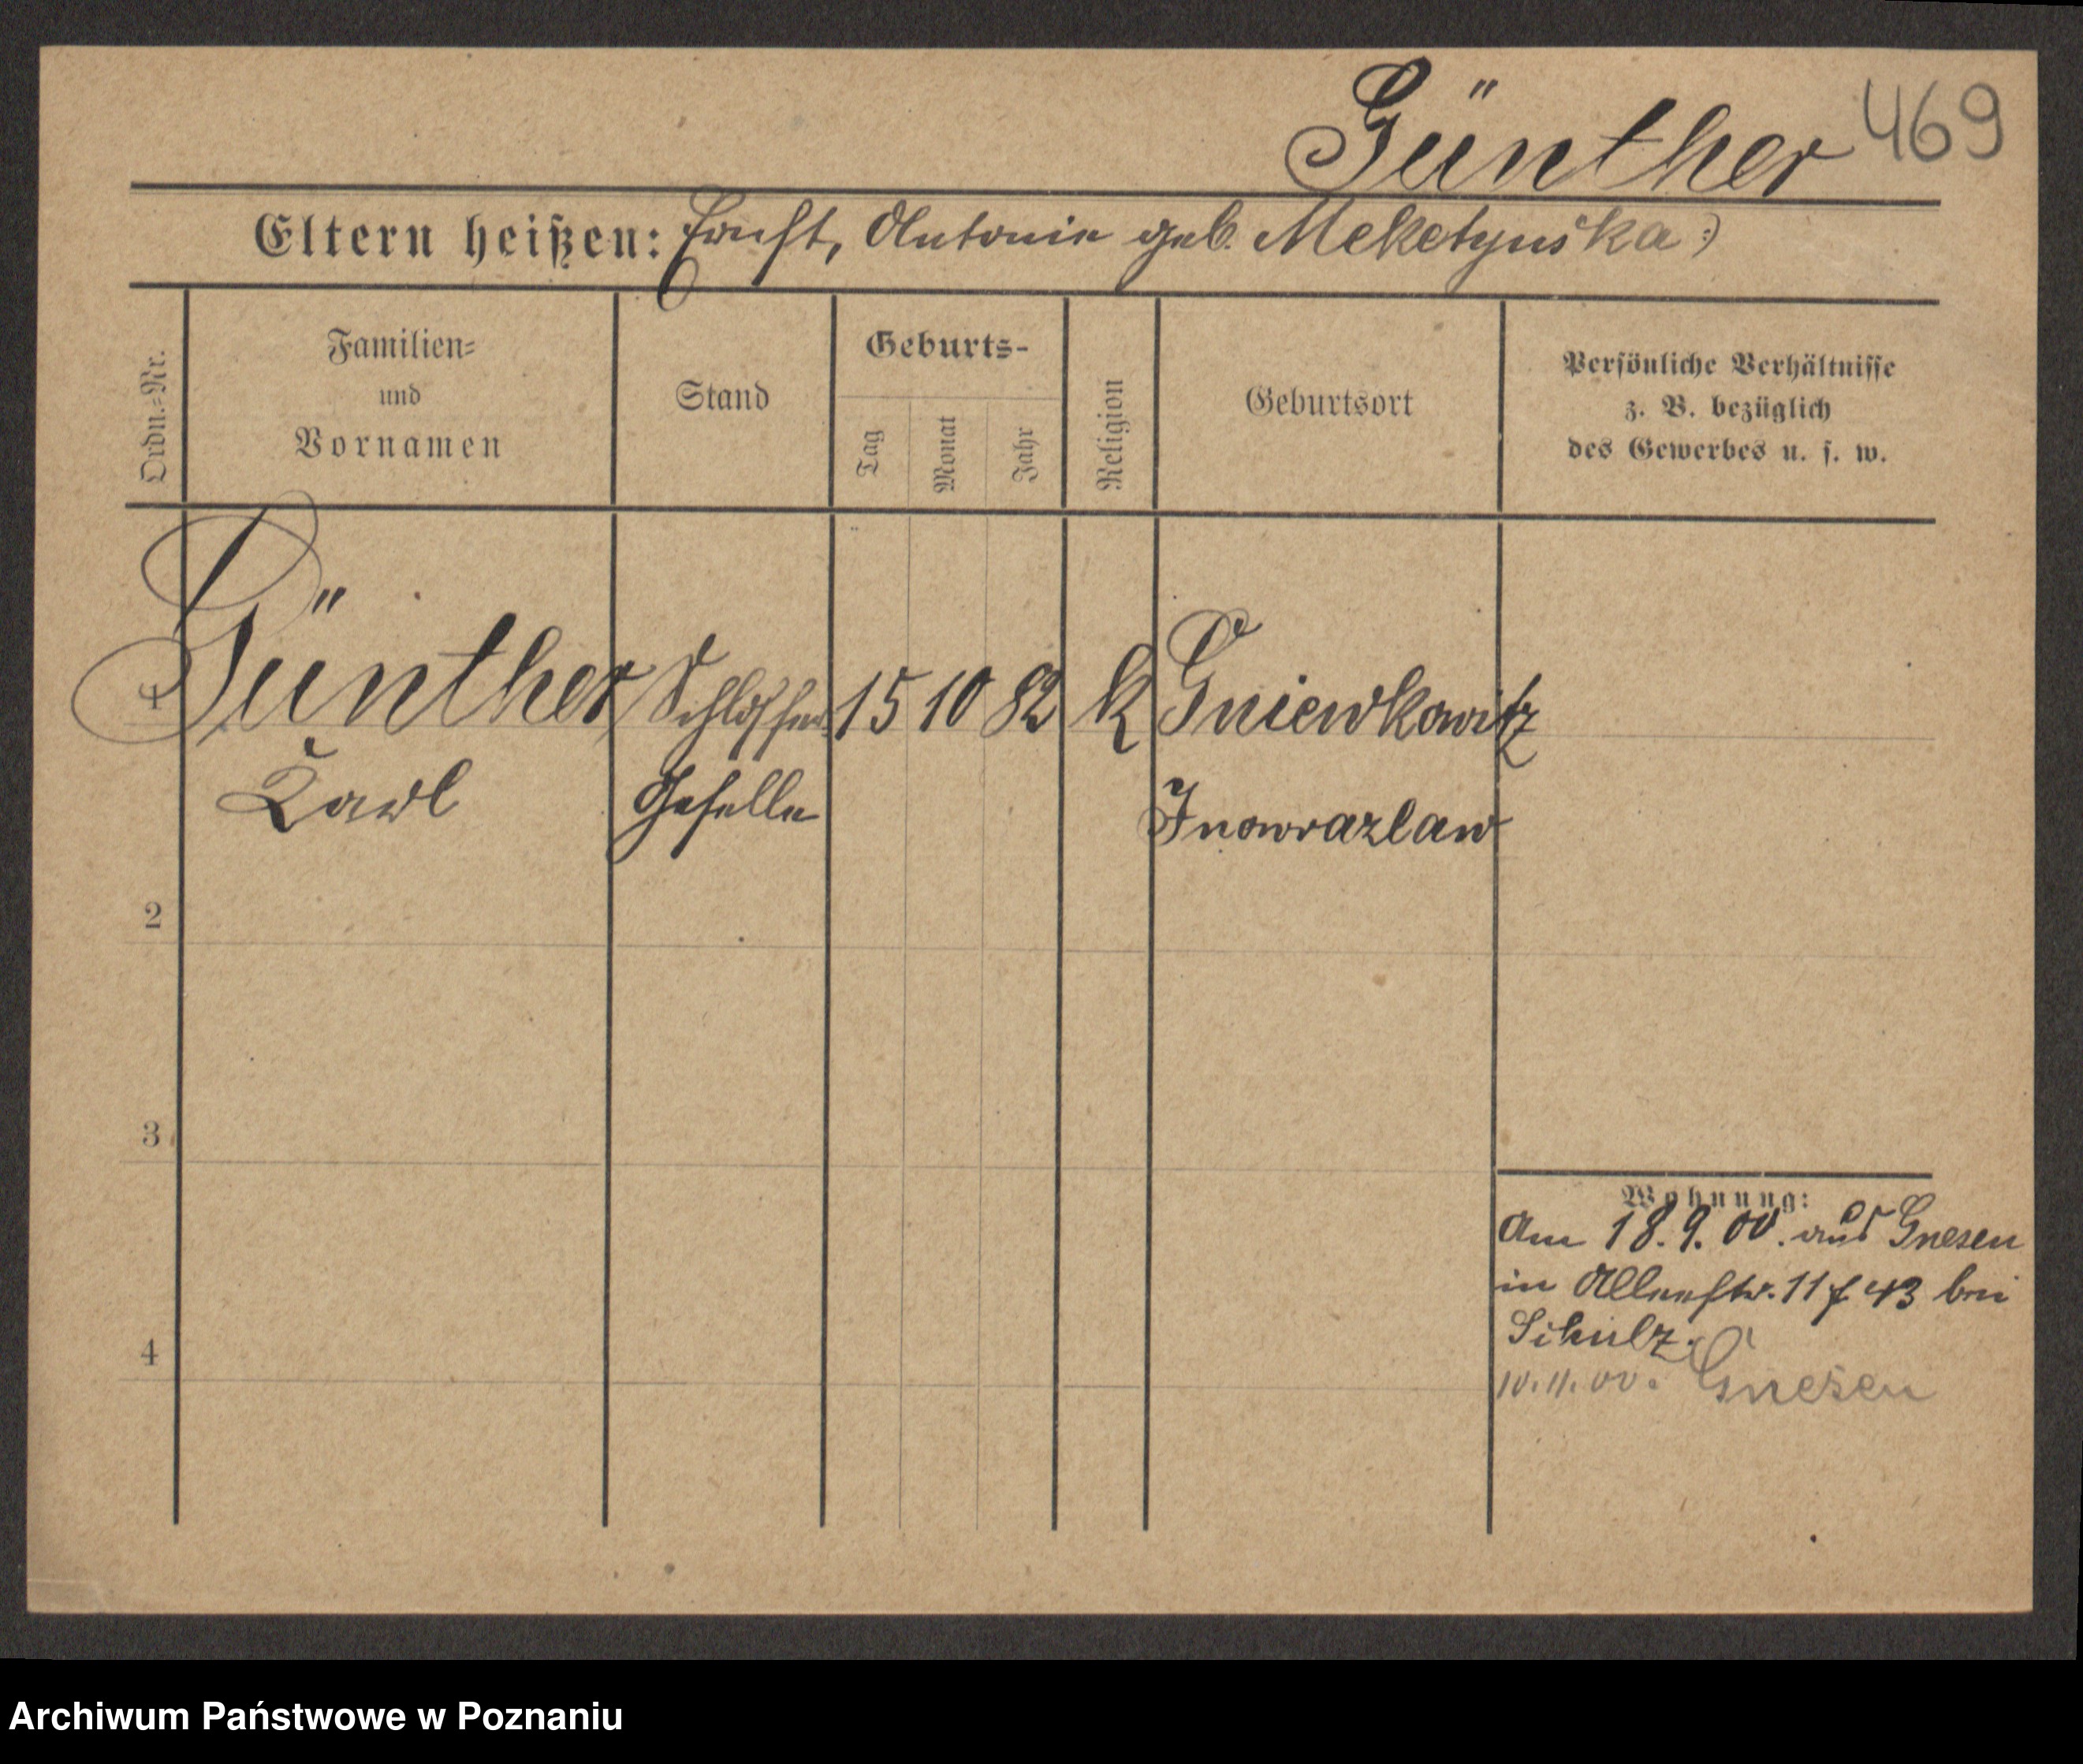 Günther 469
Eltern heißen: Ernst, Antonie geb. Meketynska :)
Ordn.=Nr.
Familien=
und
Vornamen
Stand
Geburts-
Tag
Monat
Jahr
Religion
Geburtsort
Persönliche Verhältnisse
z. B. bezüglich
des Gewerbes u. s. w.
1 Günther Schlosser 15 10 82 K Gniewkowitz
Karl Geselle Inowrazlaw
2
3
Wohnung:
Am 18.9.00. aus Gnesen
in 43 bei
Schulz.
4
10.11.00. Gnesen
Archiwum Państwowe w Poznaniu